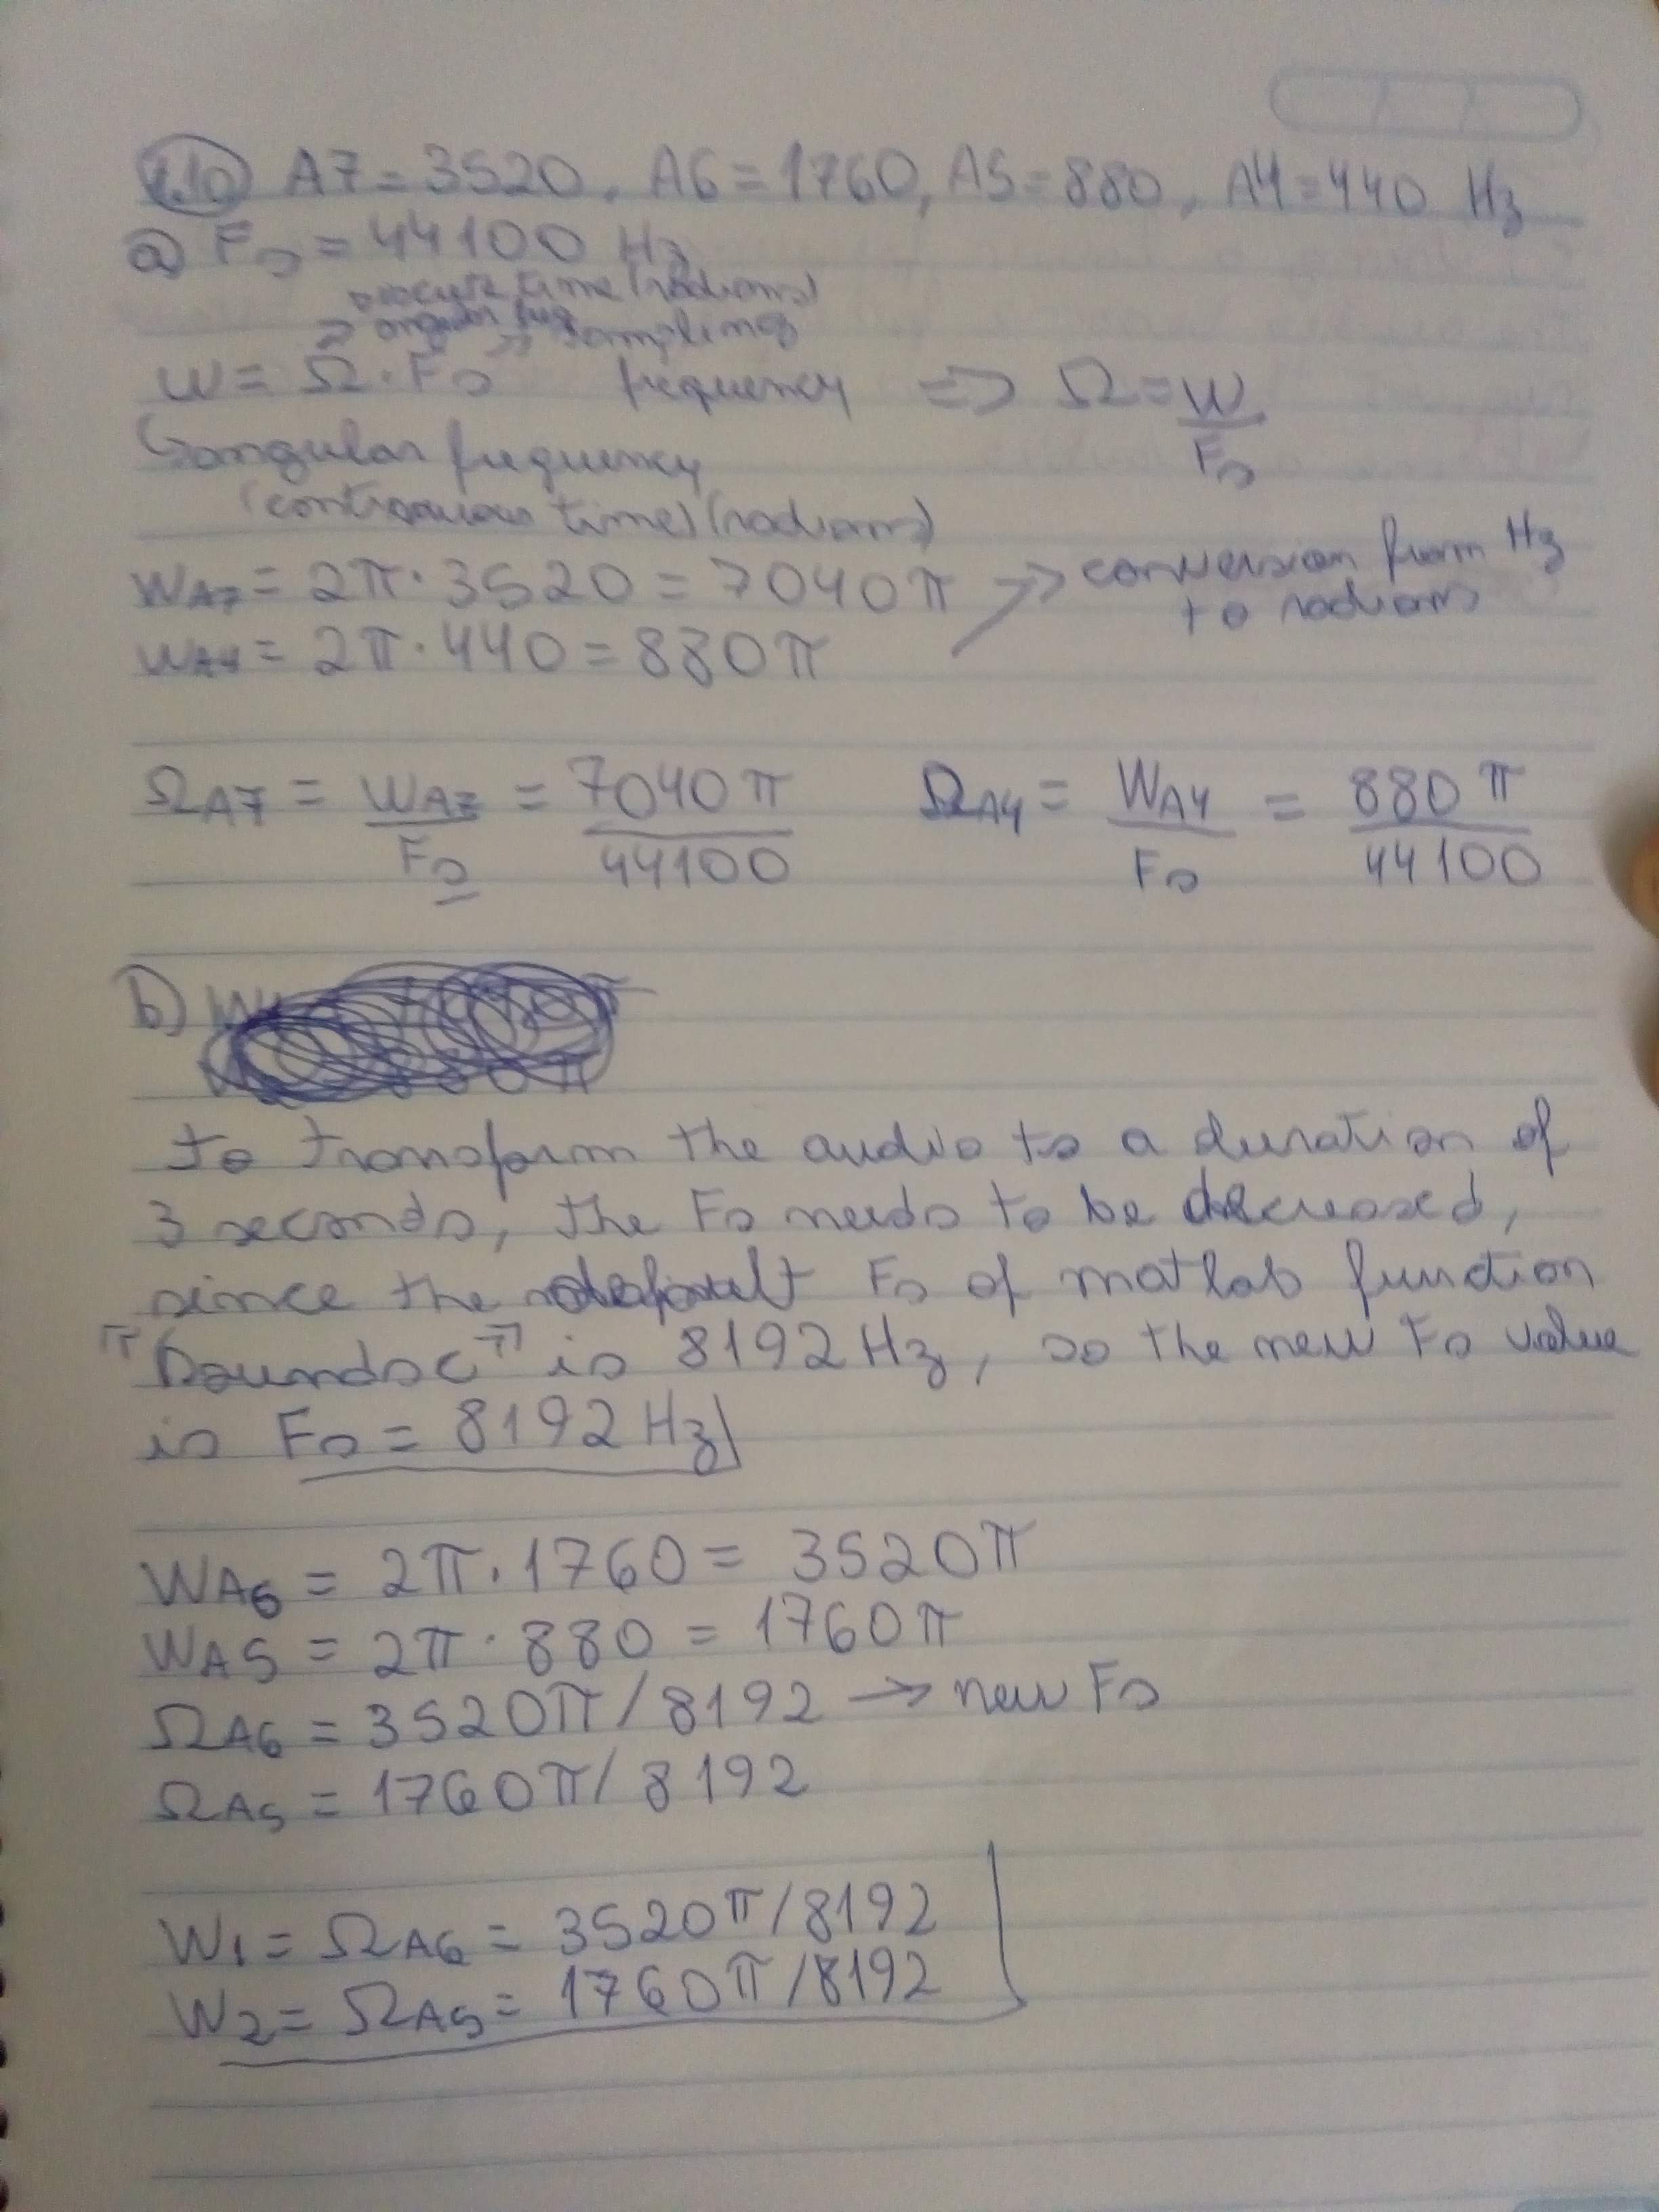 1.10 A7 = 3520, A6 = 1760, A5 = 880, A4 = 440 Hz
a) Fs = 44100 Hz
discrete time (radians)
angular freq sampling
w = Ω · Fs frequency => Ω = w / Fs
angular frequency
(continuous time) (radians)
WA7 = 2π · 3520 = 7040π → conversion from Hz
to radians
WA4 = 2π · 440 = 880π
ΩA7 = WA7 / Fs = 7040π / 44100 ΩA4 = WA4 / Fs = 880π / 44100
b)
to transform the audio to a duration of
3 seconds, the Fs needs to be decreased,
since the default Fs of matlab function
"soundsc" is 8192 Hz, so the new Fs value
is Fs = 8192 Hz
WA6 = 2π · 1760 = 3520π
WA5 = 2π · 880 = 1760π
ΩA6 = 3520π / 8192 → new Fs
ΩA5 = 1760π / 8192
W1 = ΩA6 = 3520π / 8192
W2 = ΩA5 = 1760π / 8192